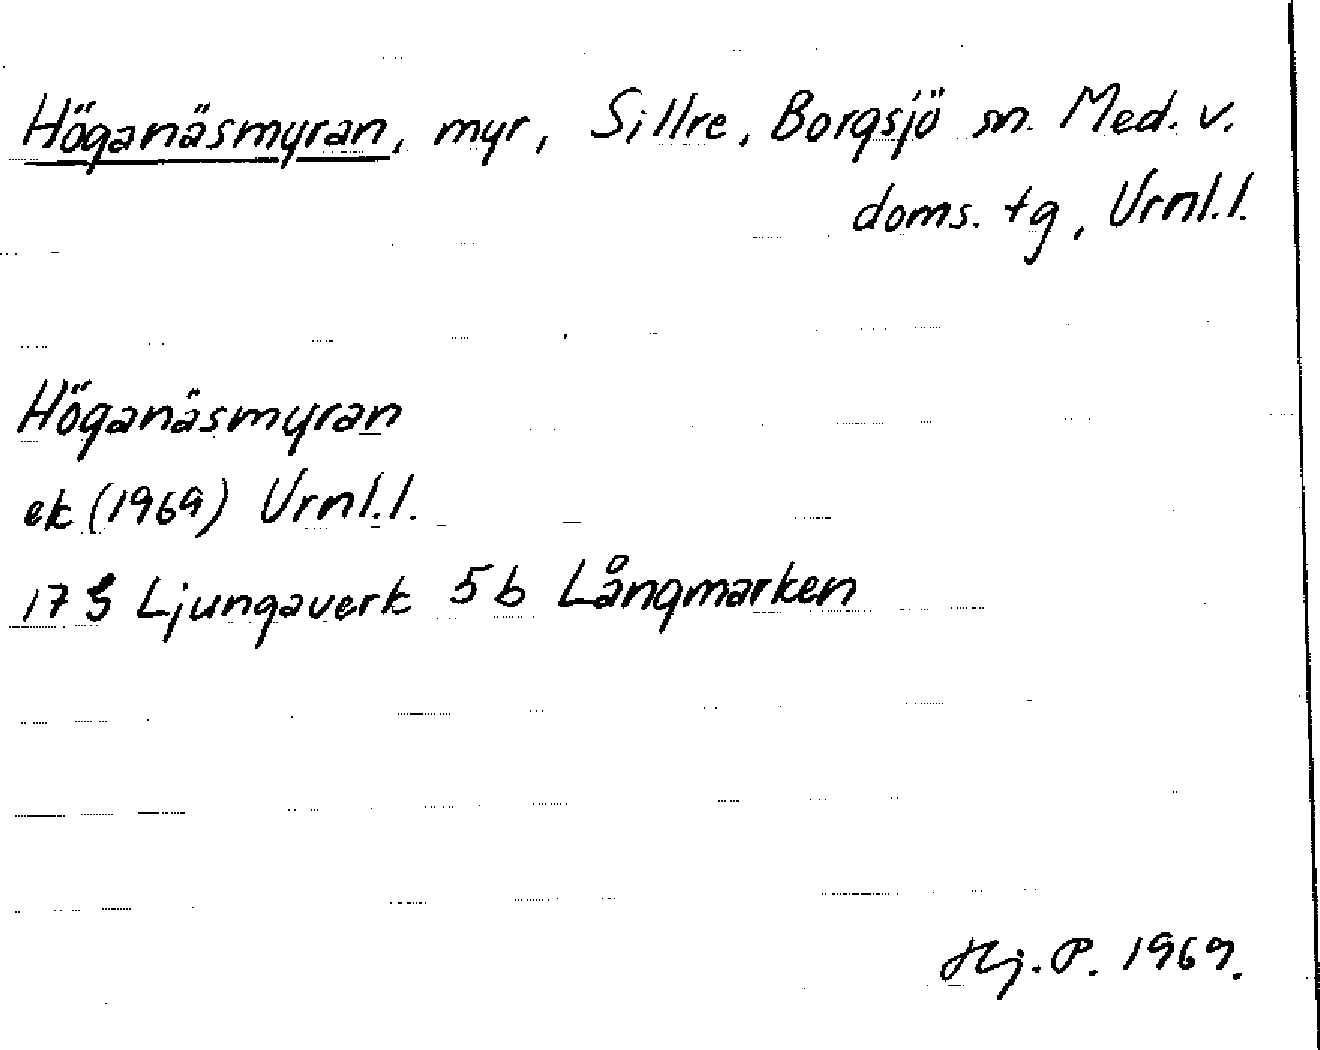 Höganäsmyran, myr, Sillre, Borgsjö sn. Med. v.
doms. tg, Urnl.l.
Höganäsmyran
ek (1969) Urnl.l.
17 G Ljungaverk 5b Långmarken
Hj. P. 1969.